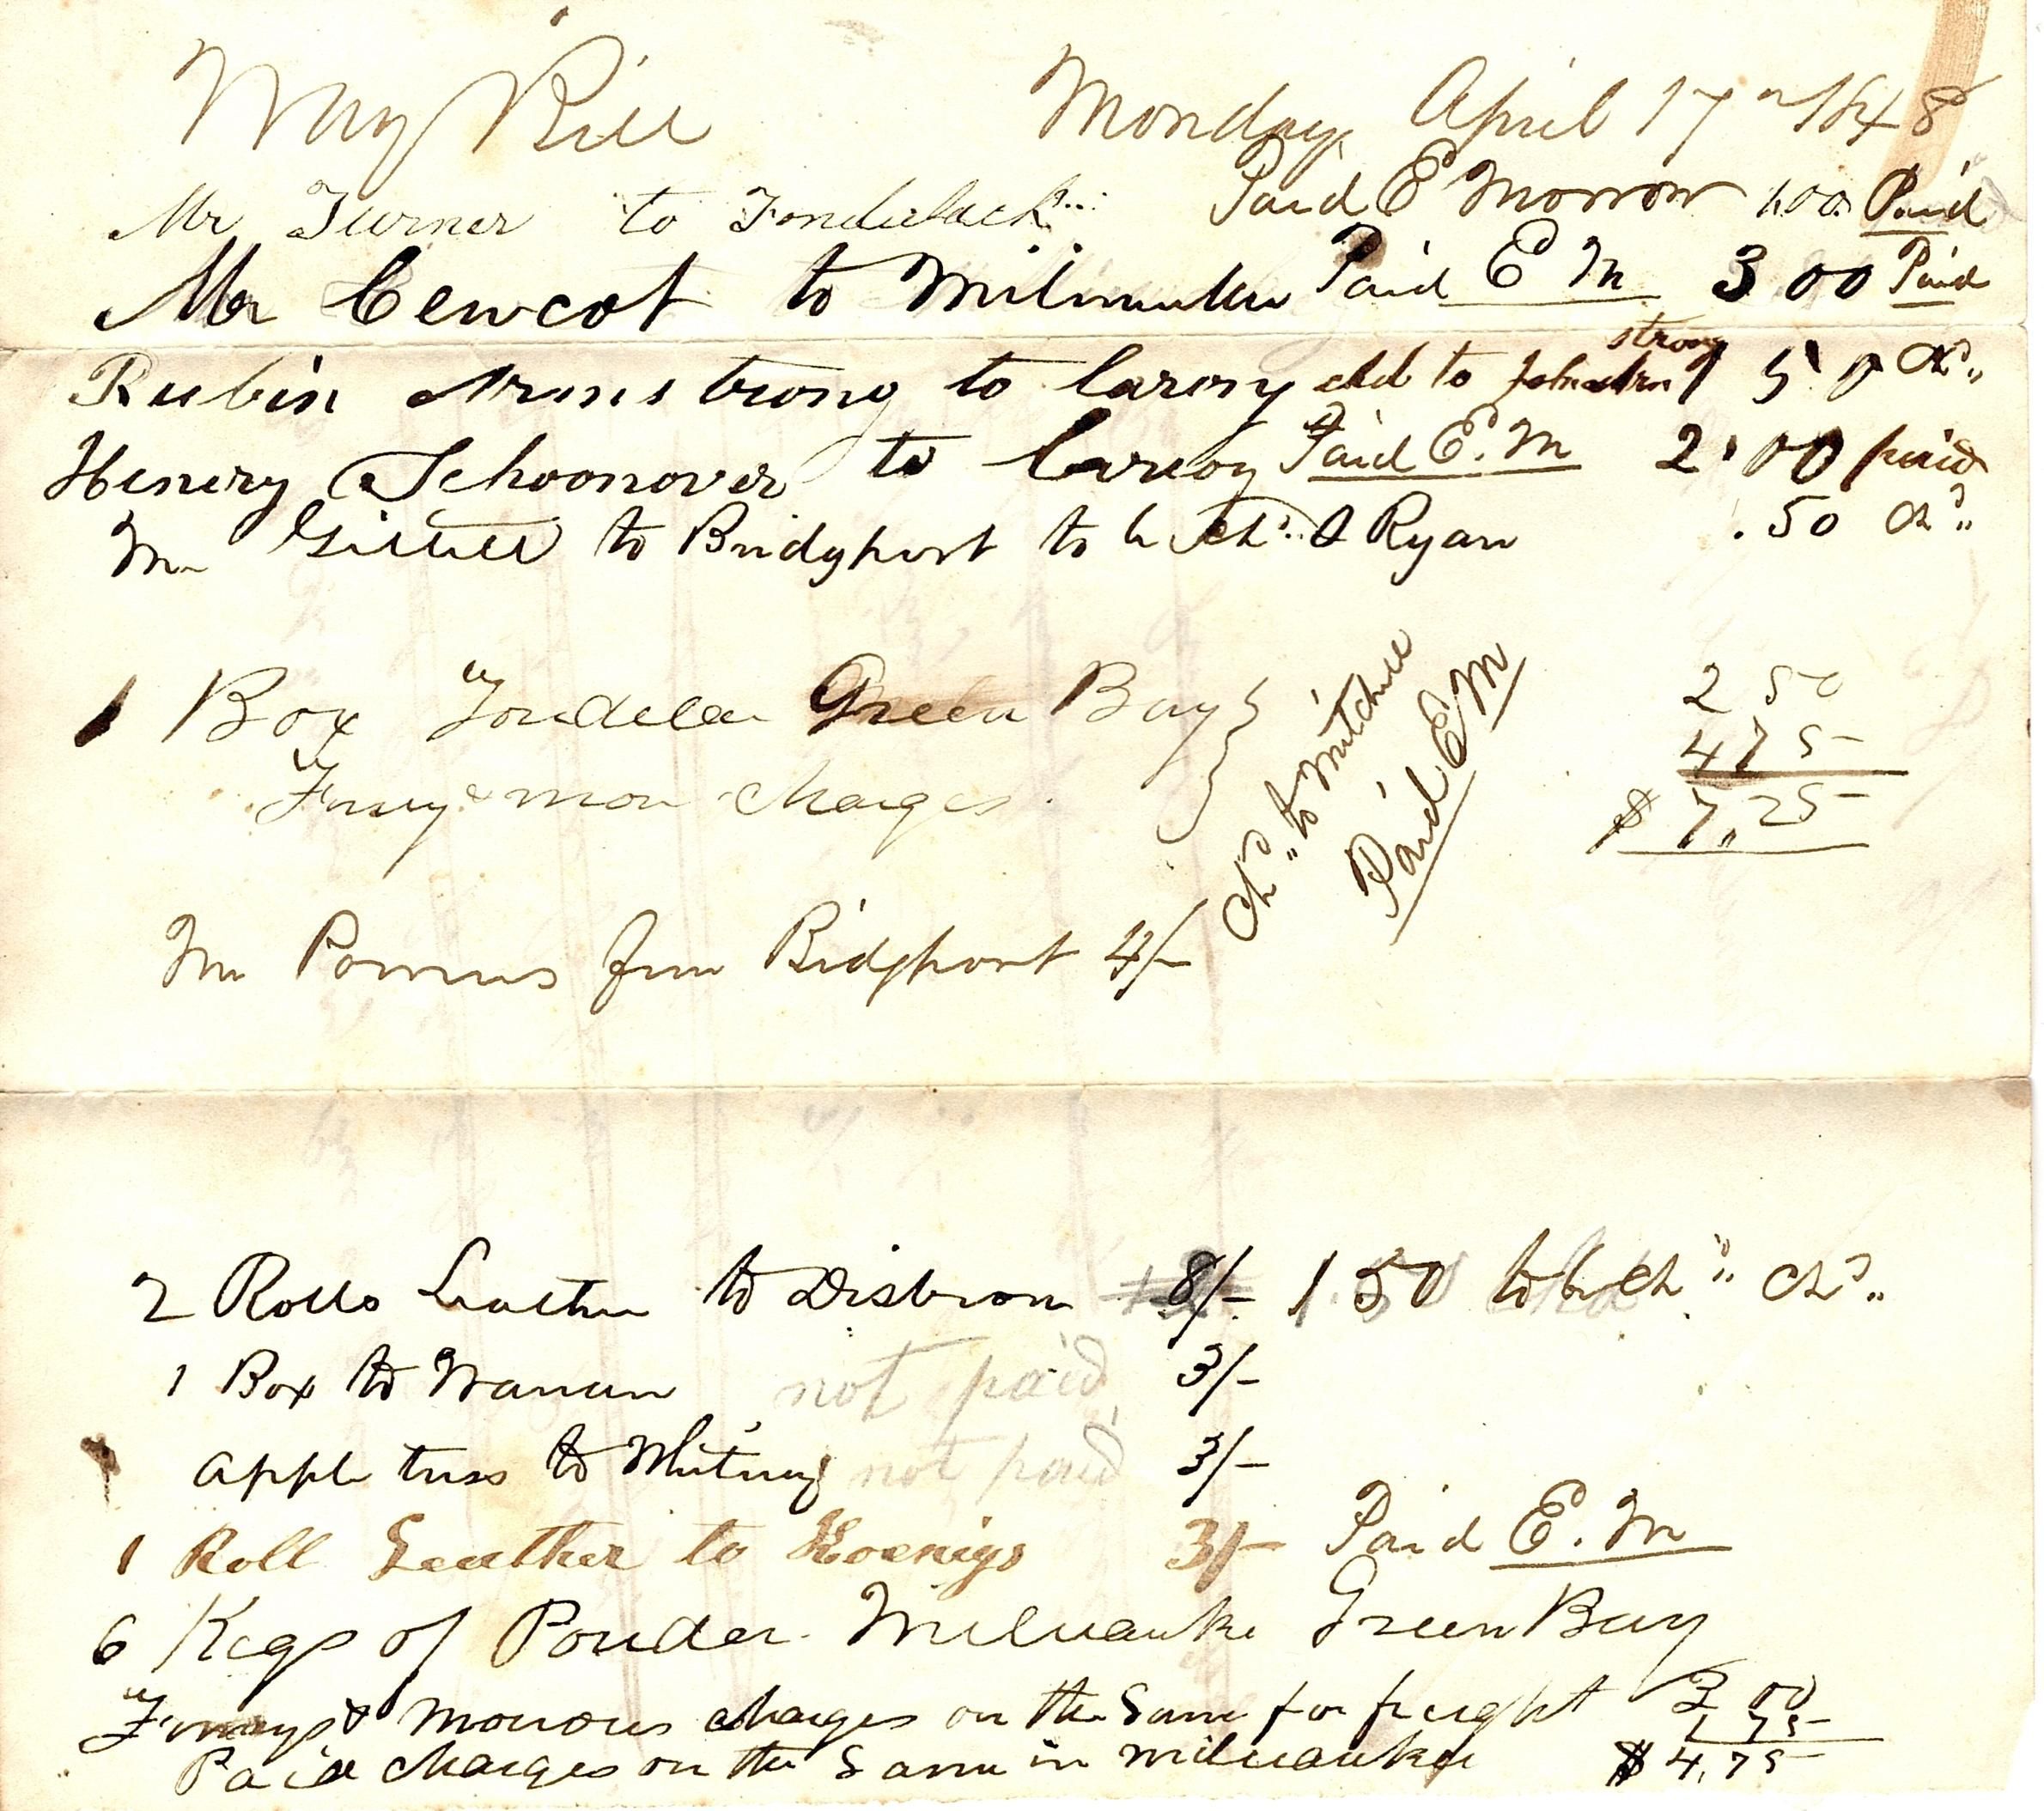 Way Bill Monday April 17th 1848
Mr Turner to Fondulack Paid E Morrow 1.00 Paid
Mr Cewcot to Milwukee Paid E M 3 00 Paid
strong
Rubin Armstrong to Caroy chd to 1 50 chd
Henery Schoonover to Carioy Paid E. M 2.00 paid
Mr to Bridgport to Ryan .50 chd
1 Box Green Bay 2 50
& mon charges 4 75
$ 7,25
chd to Mitchell
Paid E M
Mr Powers from Bridgport 4/-
2 Rolls Leather to Disbrow 8/- 1 50 to chd
1 Box to Warren not paid 3/-
appl trees to Whitney not paid 3/-
1 Roll Leather to Koenigs 3/- Paid E. M
6 Kegs of Pouder Milwauke Green Bay
& Morrows charges on the Same for freight 3 00
1 75
Paid charges on the Same in milwaukee $ 4,75